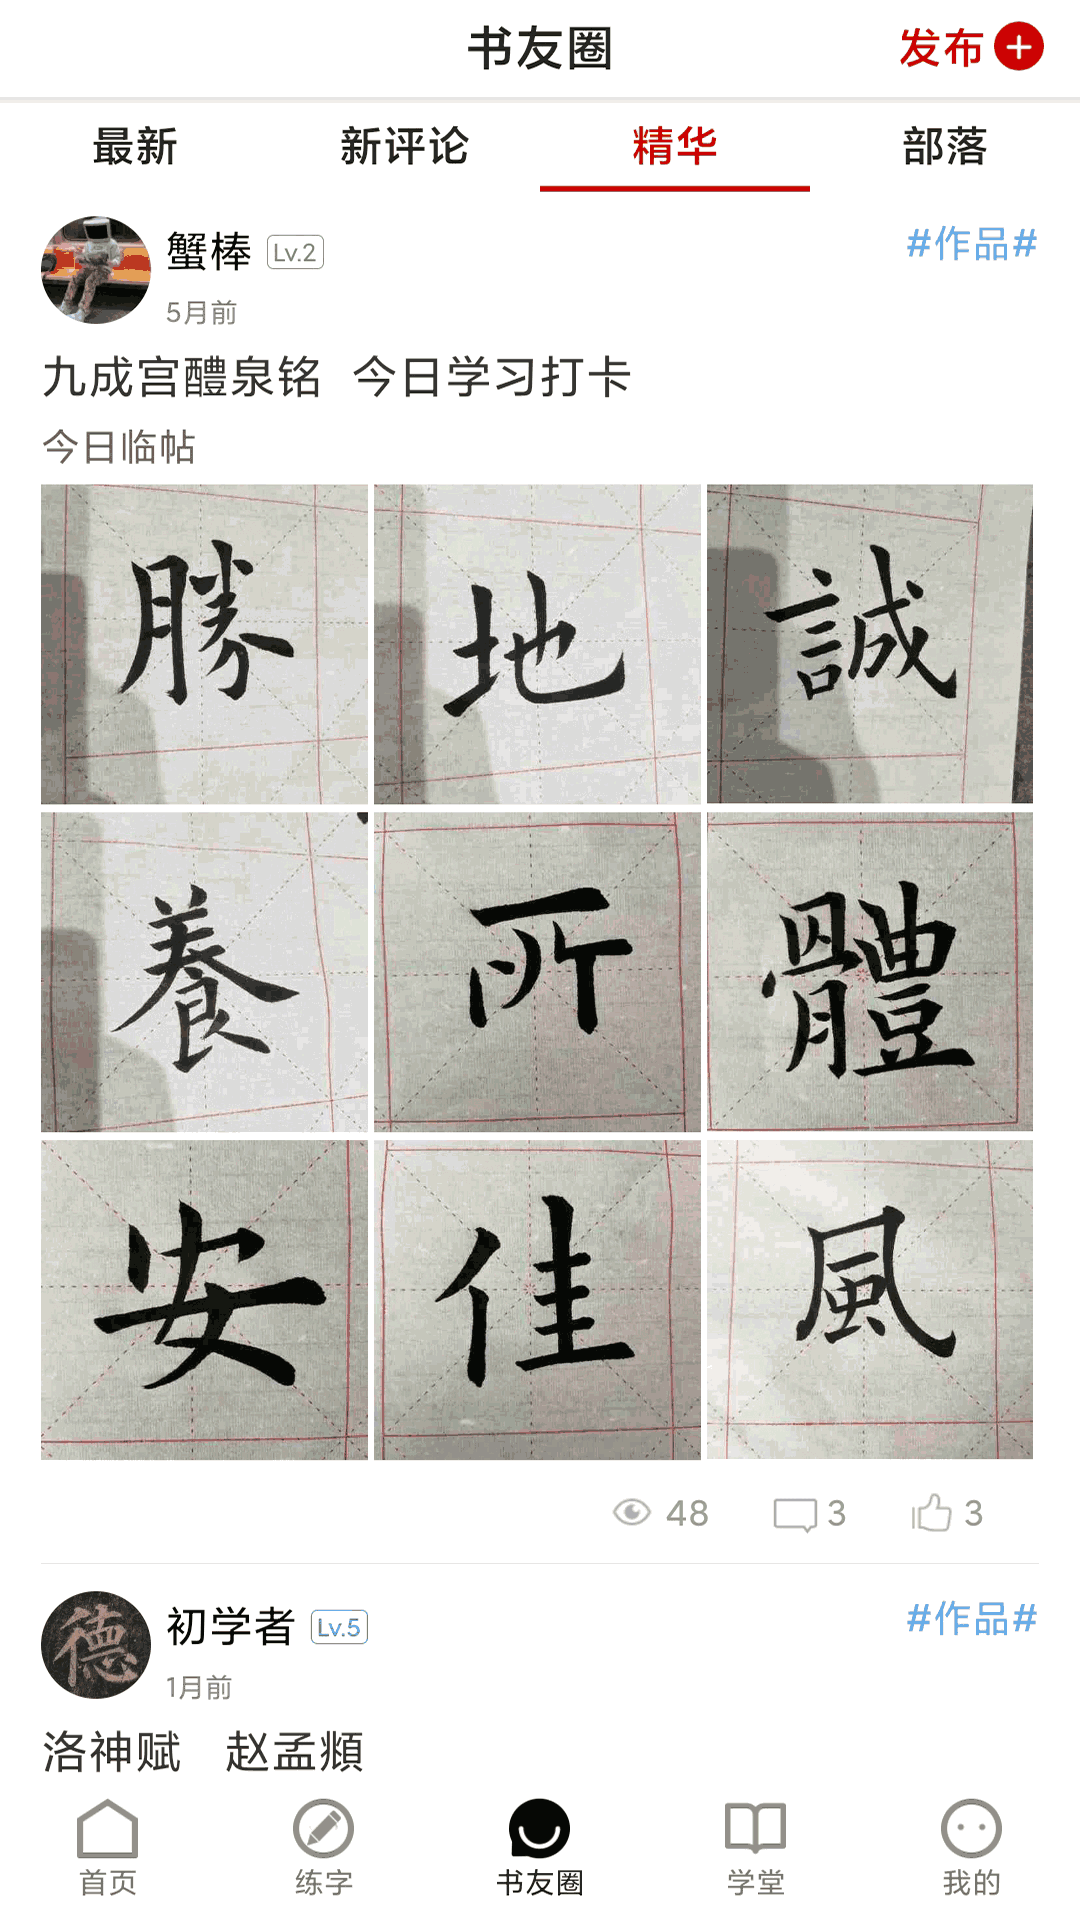 书友圈 发布
最新 新评论 精华 部落
蟹棒 Lv.2 #作品#
5月前
九成宫醴泉铭 今日学习打卡
今日临帖
勝 地 誠
養 所 體
安 佳 風
48 3 3
初学者 Lv.5 #作品#
德
1月前
洛神赋 赵孟頫
首页 练字 书友圈 学堂 我的